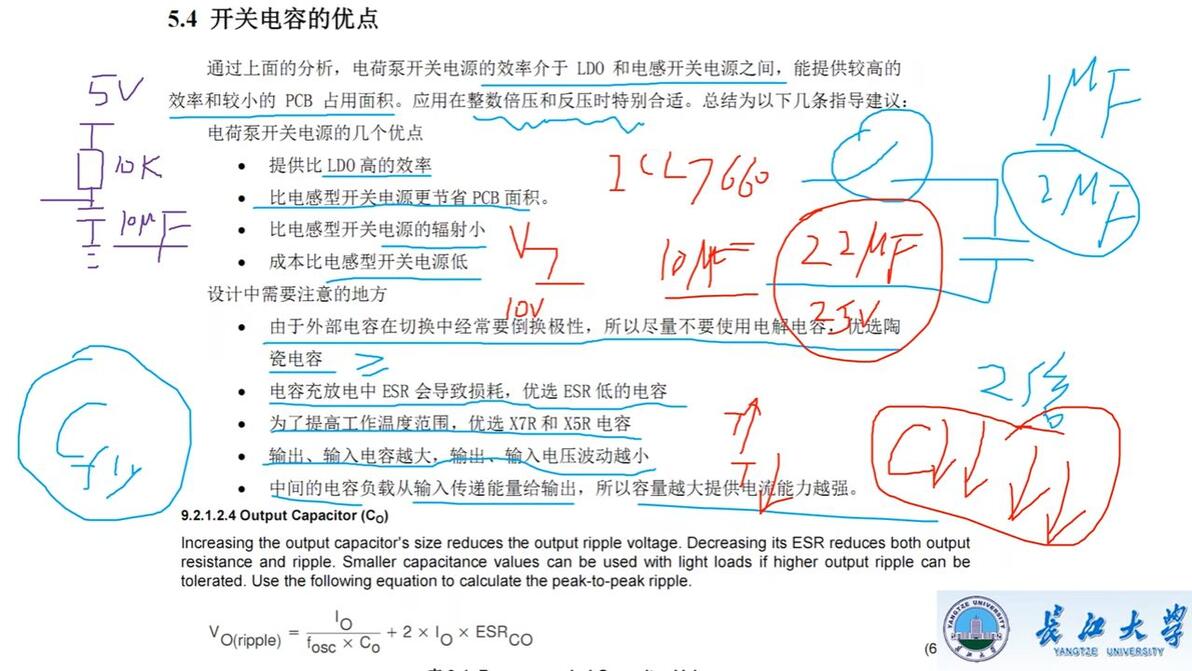 5.4 开关电容的优点
通过上面的分析，电荷泵开关电源的效率介于 LDO 和电感开关电源之间，能提供较高的
效率和较小的 PCB 占用面积。应用在整数倍压和反压时特别合适。总结为以下几条指导建议：
电荷泵开关电源的几个优点
• 提供比 LDO 高的效率
• 比电感型开关电源更节省 PCB 面积。
• 比电感型开关电源的辐射小
• 成本比电感型开关电源低
设计中需要注意的地方
• 由于外部电容在切换中经常要倒换极性，所以尽量不要使用电解电容，优选陶
瓷电容
• 电容充放电中 ESR 会导致损耗，优选 ESR 低的电容
• 为了提高工作温度范围，优选 X7R 和 X5R 电容
• 输出、输入电容越大，输出、输入电压波动越小
• 中间的电容负载从输入传递能量给输出，所以容量越大提供电流能力越强。
9.2.1.2.4 Output Capacitor (CO)
Increasing the output capacitor's size reduces the output ripple voltage. Decreasing its ESR reduces both output
resistance and ripple. Smaller capacitance values can be used with light loads if higher output ripple can be
tolerated. Use the following equation to calculate the peak-to-peak ripple.
VO(ripple) = IO / (fOSC × CO) + 2 × IO × ESRCO
(6
5V
10K
10μF
ICL7660
1μF
2μF
10V
10μF
22μF
25V
Cfly
T
C
长江大学
YANGTZE UNIVERSITY
YANGTZE UNIVERSITY